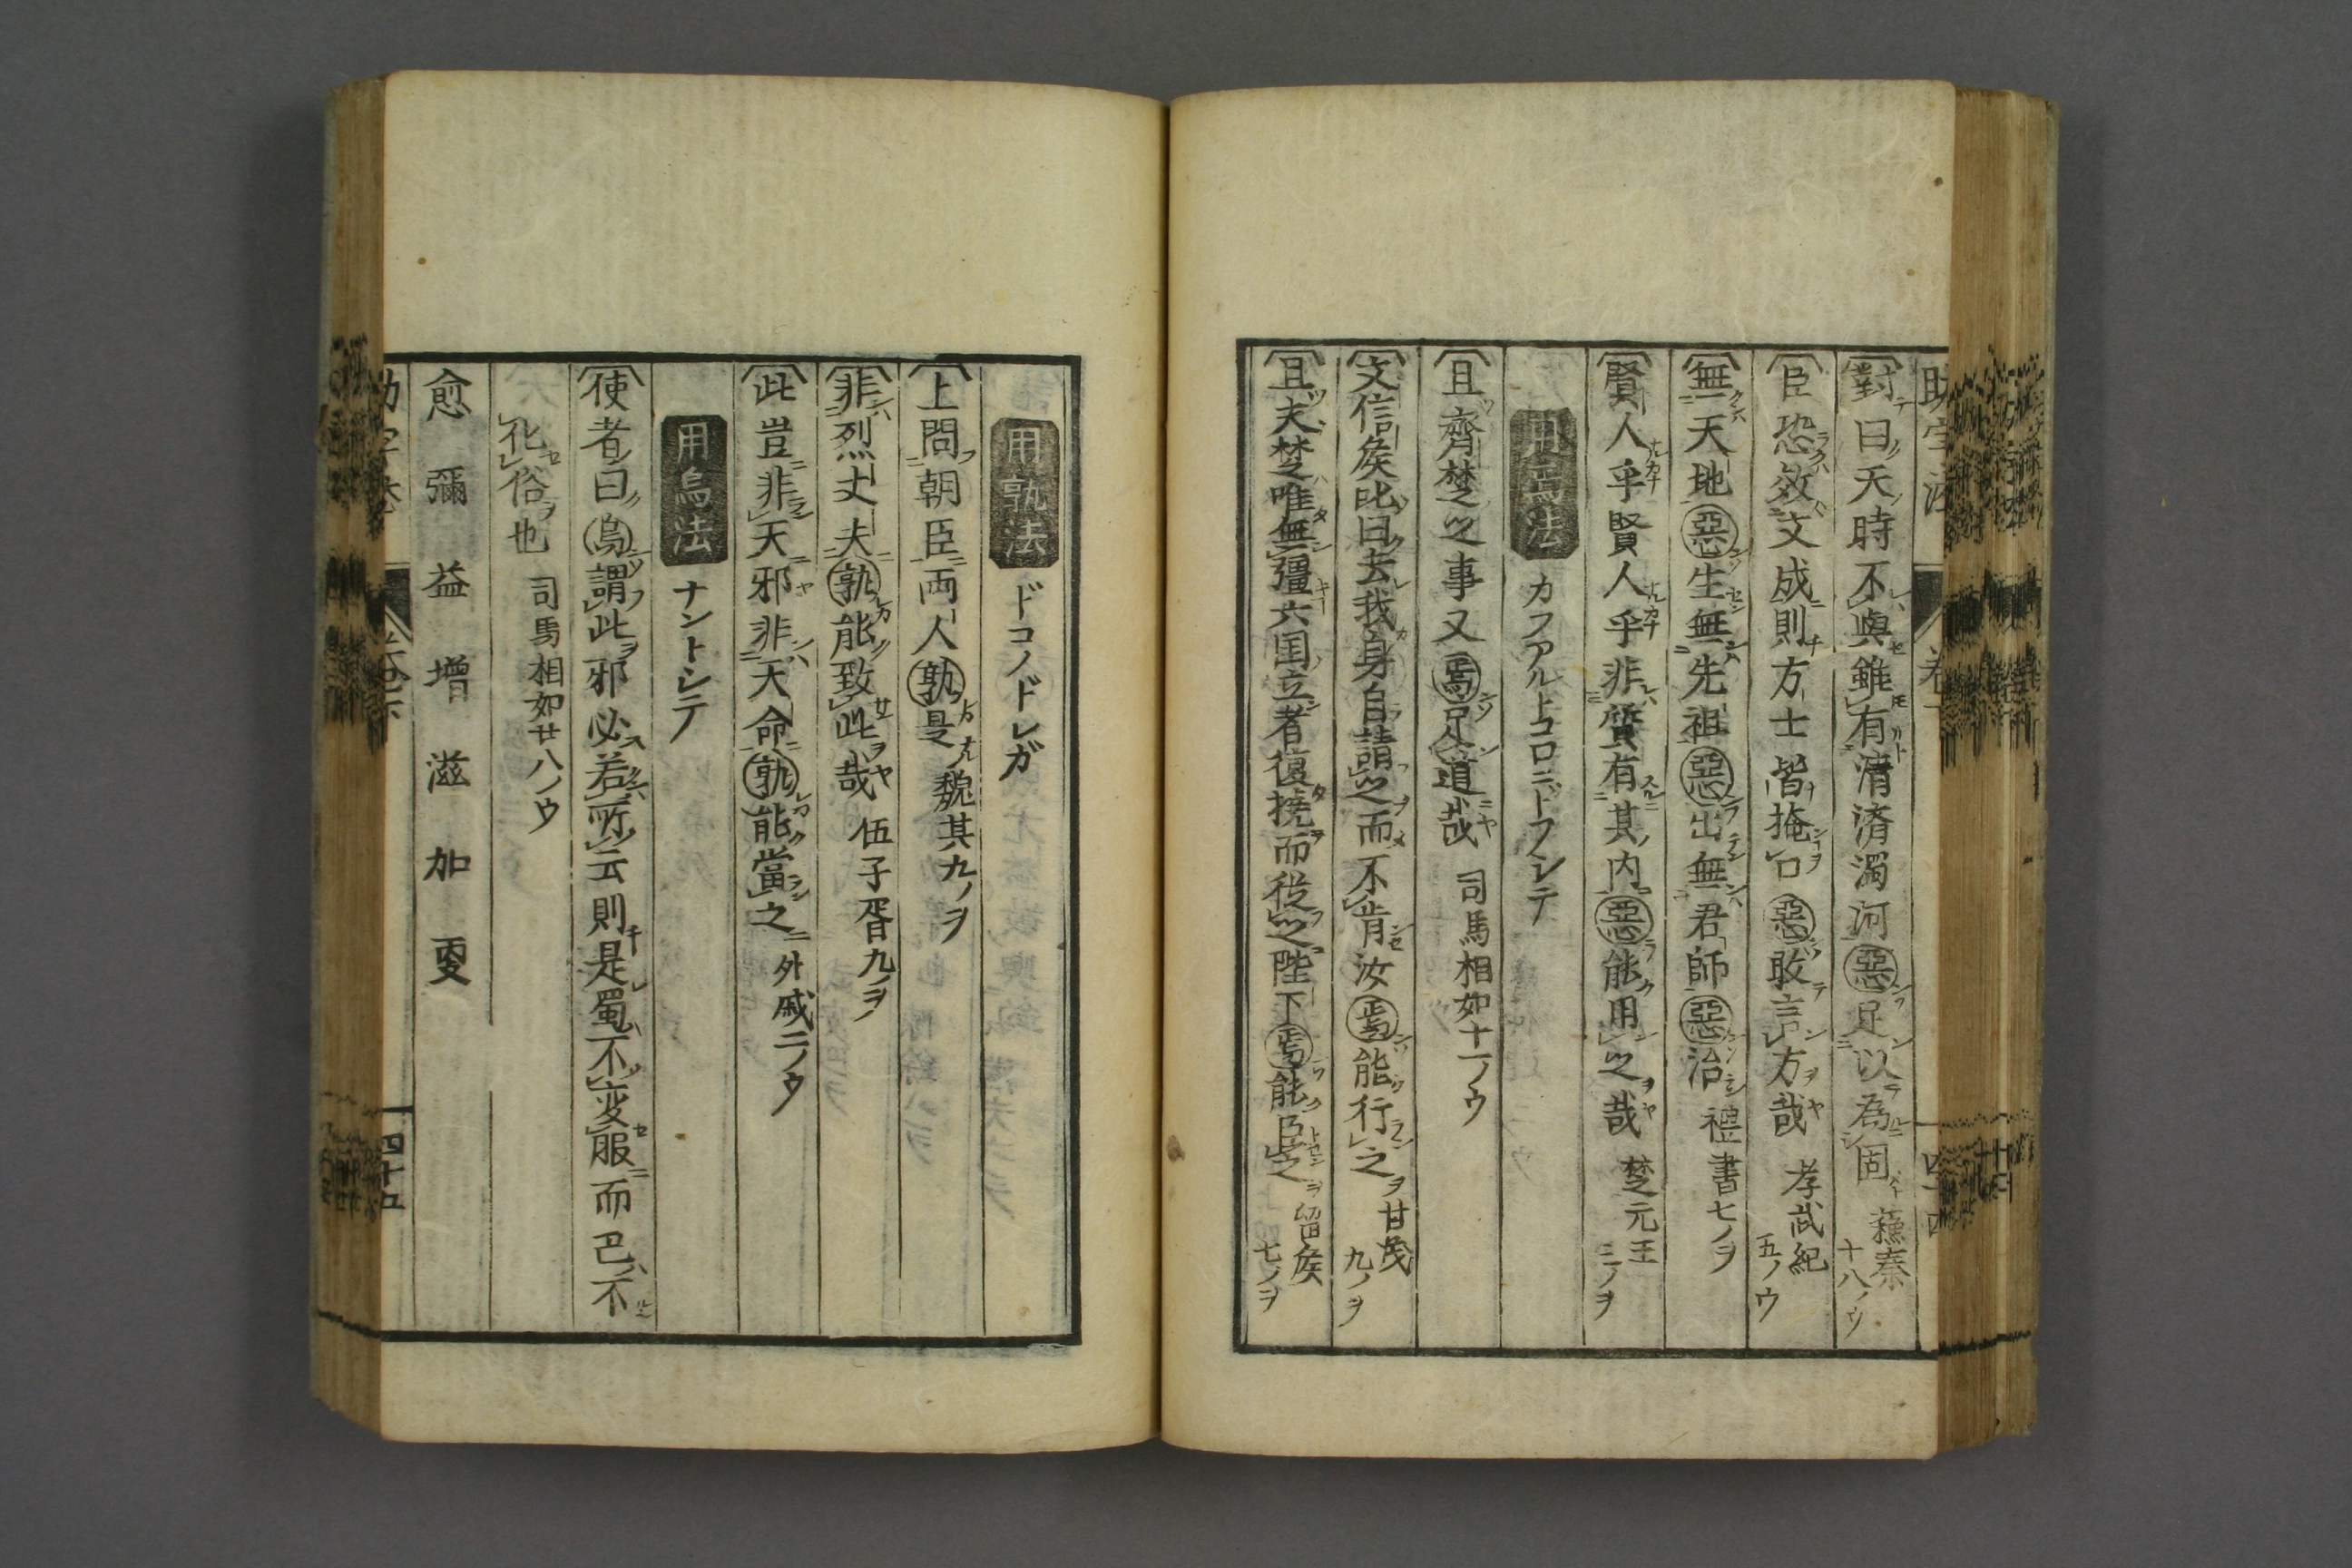 對曰天時不與雖有清済濁河惡足以為固 蘓秦十八ノウ
臣恐效文成則方士皆掩口惡敢言方哉 孝武紀五ノウ
無天地惡生無先祖惡出無君師惡治 禮書七ノヲ
賢人乎賢人乎非質有其内惡能用之哉 楚元王三ノヲ
用焉法 カフアルトコロニドフシテ
且齊楚之事又焉足道哉 司馬相如十一ノウ
文信矦叱曰去我身自請之而不肯汝焉能行之 甘茂九ノヲ
且夫楚唯無彊六国立者復撓而従之陛下焉能臣之 留矦七ノヲ
用孰法 ドコノドレガ
上問朝臣両人孰是 魏其九ノヲ
非烈丈夫孰能致此哉 伍子胥九ノヲ
此豈非天邪非天命孰能當之 外戚二ノウ
用烏法 ナントシテ
使者曰烏謂此邪必若所云則是蜀不変服而巴不
化俗也 司馬相如廿八ノウ
愈 彌 益 增 滋 加 更
四十五